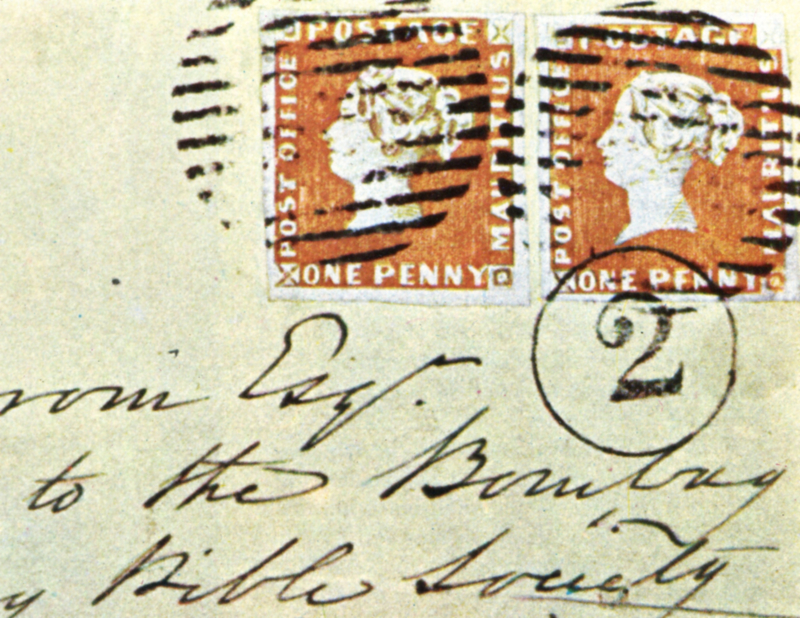 POSTAGE
POST OFFICE
MAURITIUS
ONE PENNY
POSTAGE
POST OFFICE
MAURITIUS
ONE PENNY
2
Esqr.
to the Bombay
Bible Society